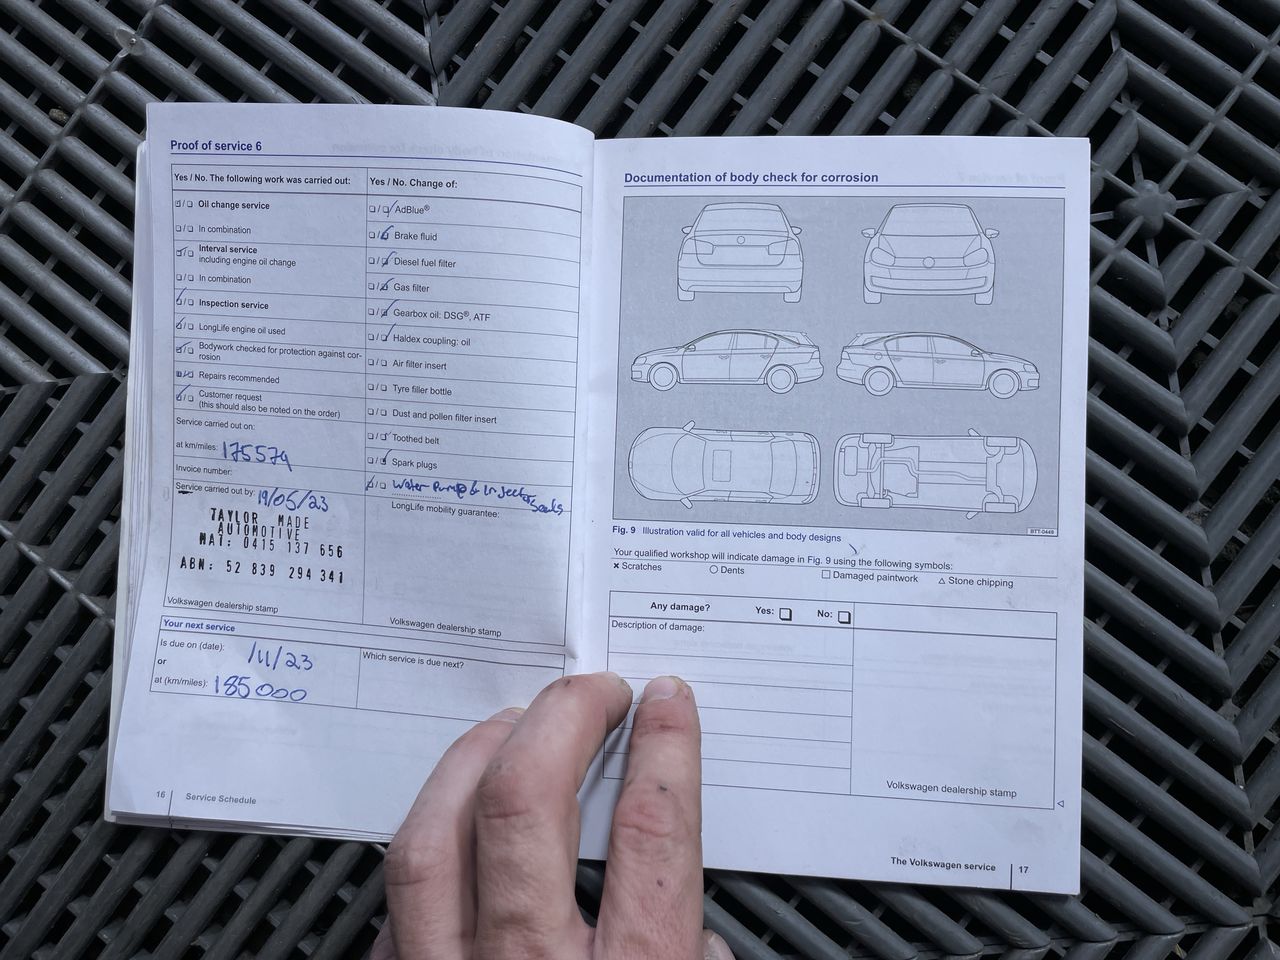 Proof of service 6
Yes / No. The following work was carried out:
Oil change service
In combination
Interval service
including engine oil change
In combination
Inspection service
LongLife engine oil used
Bodywork checked for protection against cor-
rosion
Repairs recommended
Customer request
(this should also be noted on the order)
Service carried out on:
at km/miles: 175579
Invoice number:
Service carried out by: 19/05/23
TAYLOR MADE
AUTOMOTIVE
MAT: 0415 137 656
ABN: 52 839 294 341
Volkswagen dealership stamp
Yes / No. Change of:
AdBlue®
Brake fluid
Diesel fuel filter
Gas filter
Gearbox oil: DSG®, ATF
Haldex coupling: oil
Air filter insert
Tyre filler bottle
Dust and pollen filter insert
Toothed belt
Spark plugs
Water Pump & Injector
Seals
LongLife mobility guarantee:
Volkswagen dealership stamp
Your next service
Is due on (date): /11/23
or
at (km/miles): 185000
Which service is due next?
16 Service Schedule
Documentation of body check for corrosion
BTT-0449
Fig. 9 Illustration valid for all vehicles and body designs
Your qualified workshop will indicate damage in Fig. 9 using the following symbols:
× Scratches ○ Dents □ Damaged paintwork △ Stone chipping
Any damage? Yes: No:
Description of damage:
Volkswagen dealership stamp
The Volkswagen service 17